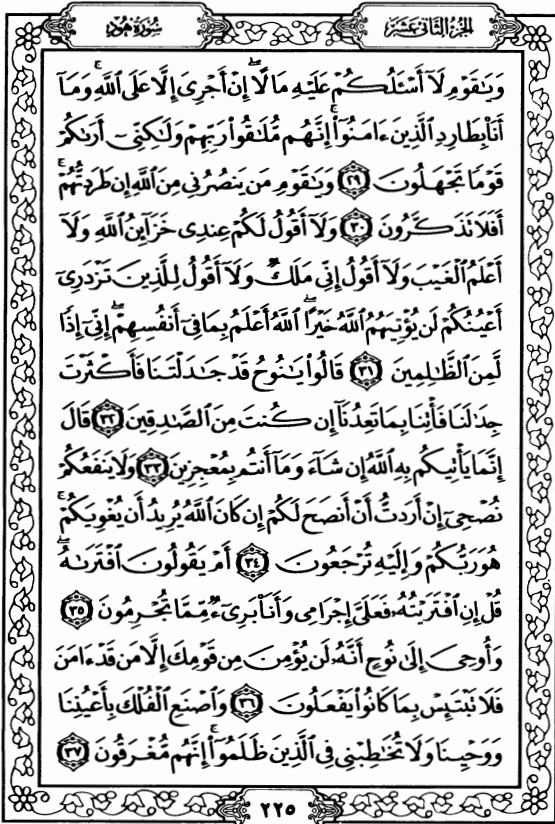 الجزء الثاني عشر
سورة هود
وَيَٰقَوْمِ لَآ أَسْـَٔلُكُمْ عَلَيْهِ مَالًاۖ إِنْ أَجْرِىَ إِلَّا عَلَى ٱللَّهِۚ وَمَآ
أَنَا۠ بِطَارِدِ ٱلَّذِينَ ءَامَنُوٓا۟ۚ إِنَّهُم مُّلَٰقُوا۟ رَبِّهِمْ وَلَٰكِنِّىٓ أَرَىٰكُمْ
قَوْمًا تَجْهَلُونَ ٢٩ وَيَٰقَوْمِ مَن يَنصُرُنِى مِنَ ٱللَّهِ إِن طَرَدتُّهُمْۚ
أَفَلَا تَذَكَّرُونَ ٣٠ وَلَآ أَقُولُ لَكُمْ عِندِى خَزَآئِنُ ٱللَّهِ وَلَآ
أَعْلَمُ ٱلْغَيْبَ وَلَآ أَقُولُ إِنِّى مَلَكٌ وَلَآ أَقُولُ لِلَّذِينَ تَزْدَرِىٓ
أَعْيُنُكُمْ لَن يُؤْتِيَهُمُ ٱللَّهُ خَيْرًاۖ ٱللَّهُ أَعْلَمُ بِمَا فِىٓ أَنفُسِهِمْۖ إِنِّىٓ إِذًا
لَّمِنَ ٱلظَّٰلِمِينَ ٣١ قَالُوا۟ يَٰنُوحُ قَدْ جَٰدَلْتَنَا فَأَكْثَرْتَ
جِدَٰلَنَا فَأْتِنَا بِمَا تَعِدُنَآ إِن كُنتَ مِنَ ٱلصَّٰدِقِينَ ٣٢ قَالَ
إِنَّمَا يَأْتِيكُم بِهِ ٱللَّهُ إِن شَآءَ وَمَآ أَنتُم بِمُعْجِزِينَ ٣٣ وَلَا يَنفَعُكُمْ
نُصْحِىٓ إِنْ أَرَدتُّ أَنْ أَنصَحَ لَكُمْ إِن كَانَ ٱللَّهُ يُرِيدُ أَن يُغْوِيَكُمْۚ
هُوَ رَبُّكُمْ وَإِلَيْهِ تُرْجَعُونَ ٣٤ أَمْ يَقُولُونَ ٱفْتَرَىٰهُۖ
قُلْ إِنِ ٱفْتَرَيْتُهُۥ فَعَلَىَّ إِجْرَامِى وَأَنَا۠ بَرِىٓءٌ مِّمَّا تُجْرِمُونَ ٣٥
وَأُوحِىَ إِلَىٰ نُوحٍ أَنَّهُۥ لَن يُؤْمِنَ مِن قَوْمِكَ إِلَّا مَن قَدْ ءَامَنَ
فَلَا تَبْتَئِسْ بِمَا كَانُوا۟ يَفْعَلُونَ ٣٦ وَٱصْنَعِ ٱلْفُلْكَ بِأَعْيُنِنَا
وَوَحْيِنَا وَلَا تُخَٰطِبْنِى فِى ٱلَّذِينَ ظَلَمُوٓا۟ۚ إِنَّهُم مُّغْرَقُونَ ٣٧
٢٢٥